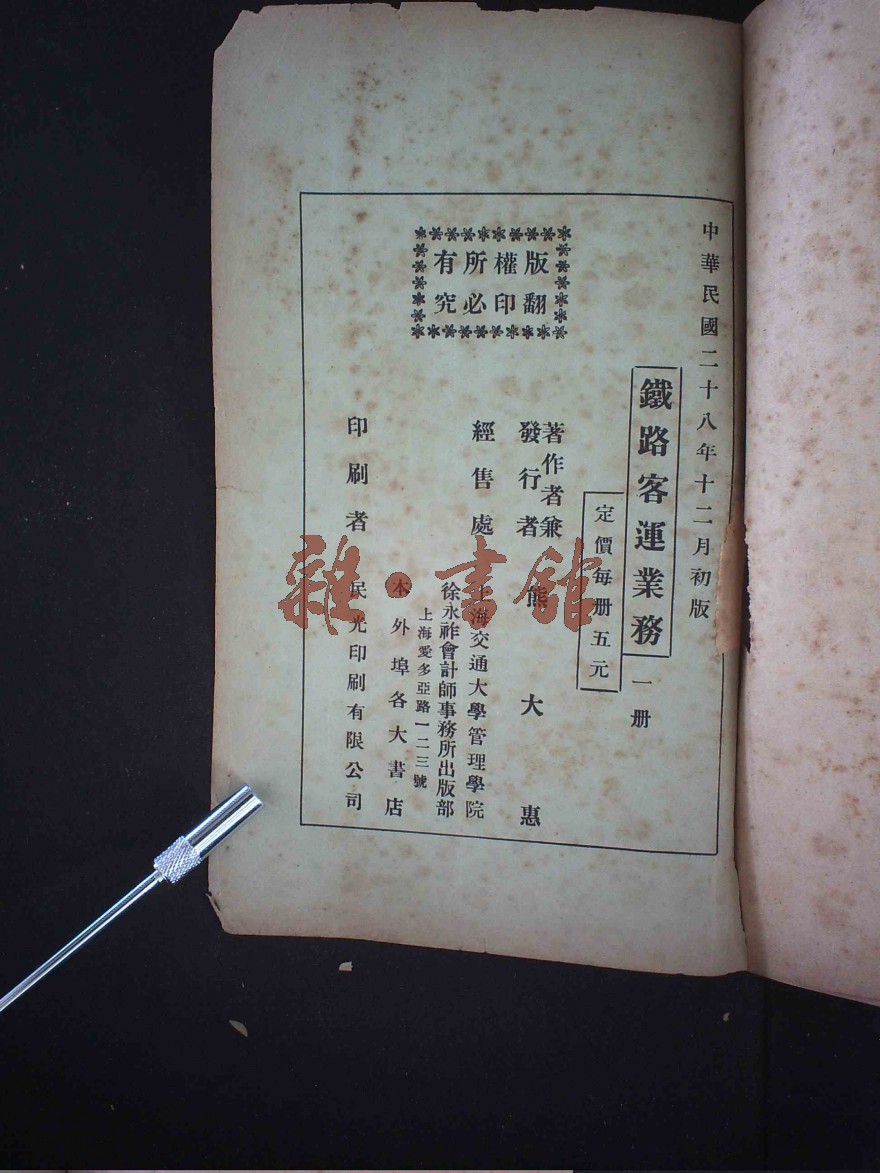 中華民國二十八年十二月初版
鐵路客運業務 一册
定價每册五元
版權所有
翻印必究
著作者兼
發行者 熊大惠
經售處
上海交通大學管理學院
徐永祚會計師事務所出版部
上海愛多亞路一二三號
本外埠各大書店
印刷者 民光印刷有限公司
雜·書館